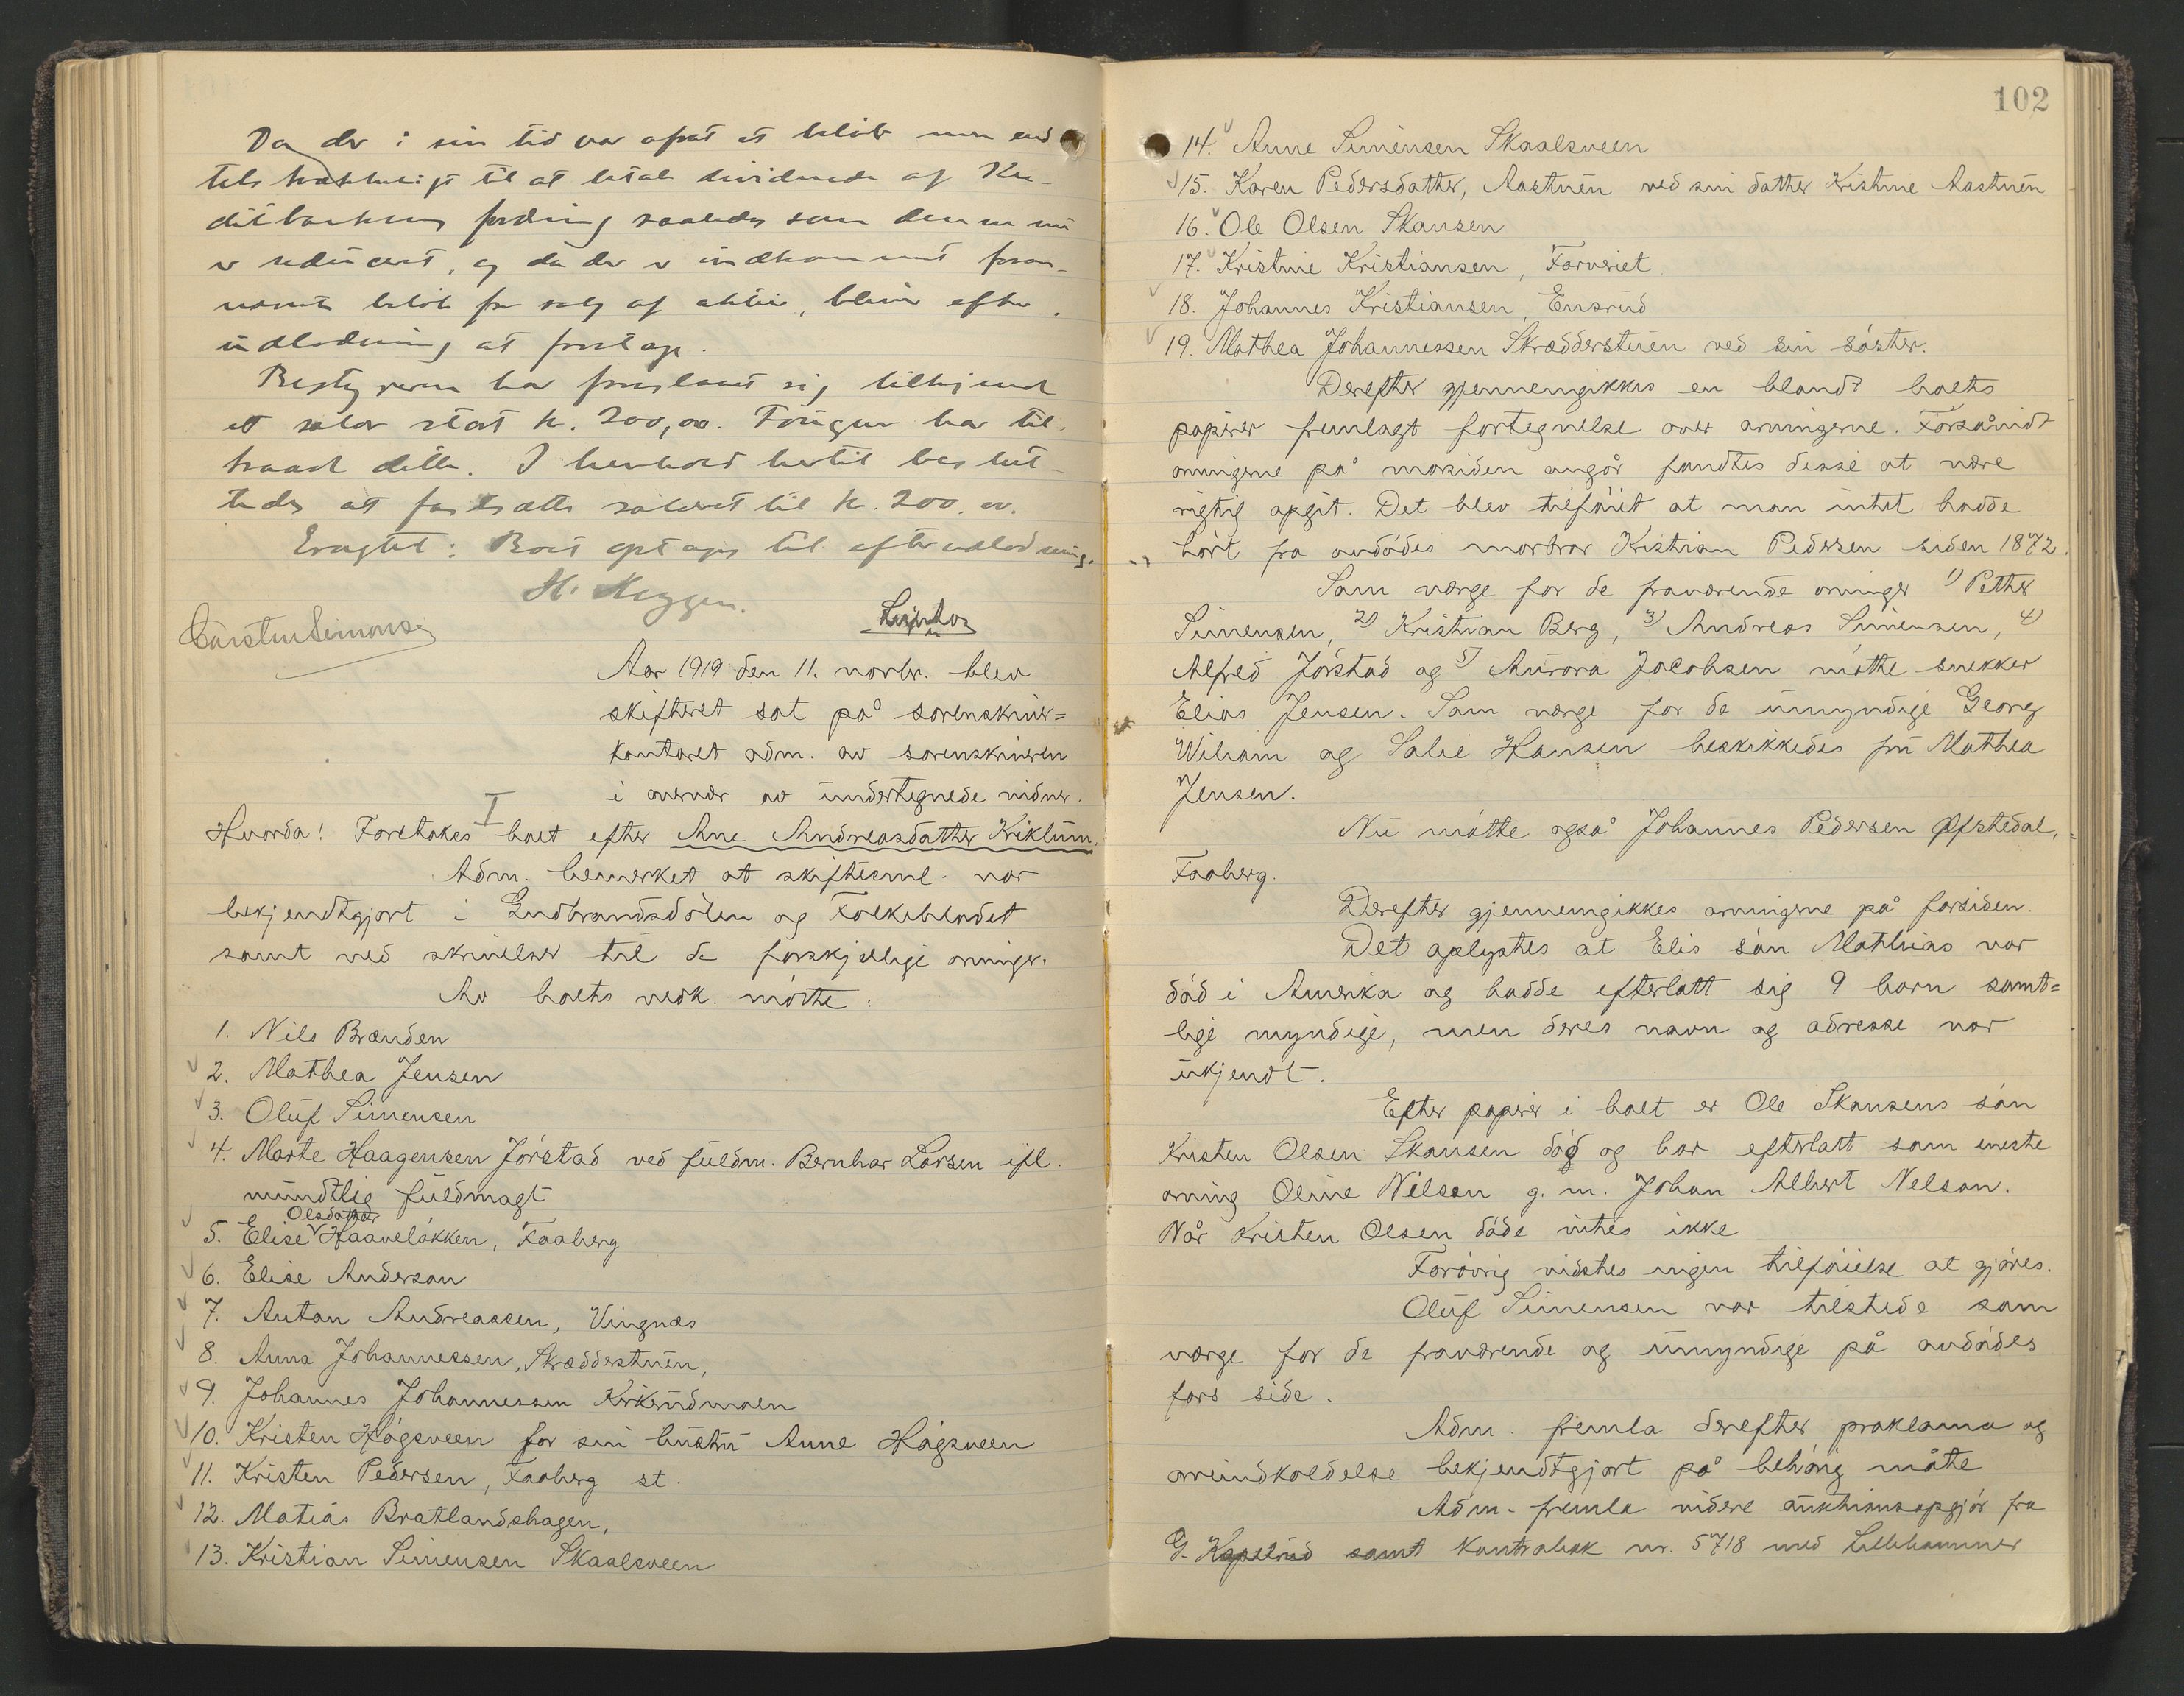 Da der i sin tid var afsat et beløb mer end
tilstrækkelig til at betale dividende af Kre-
ditbankens fordring saaledes som denne nu
er reducert, og da der er indkommet foran-
nævnte beløb for salg af aktie, bliver efter-
utlodning at foretage.
Bestyreren har foreslaaet sig tilkjendt
et salær stort kr. 200,00. Fougner har til-
traadt dette. I henhold hertil beslut-
tedes at fastsætte salæret til kr. 200.00.
Eragtet: Boet optages til efterutlodning.
H. Meggen.
Carsten Simonsen
Aar 1919 den 11. novbr. blev
skifteret sat på sorenskriver=
kontoret adm. av sorenskriveren
i overvær av undertegnede vidner.
I
Hvorda! Foretokes boet efter Ane Andreasdatter Kriklum.
Adm. bemerket at skiftesml. var
bekjendtgjort i Gudbrandsdølen og Folkebladet
samt ved skrivelser til de forskjellige arvinger.
Av boets vedk. møtte:
1. Nils Brænden
2. Mathea Jensen
3. Oluf Simensen
4. Marte Haagensen Jørstad ved fuldm. Bernhar Larsen ifl.
mundtlig fuldmagt
Olsdatter
5. Elise Haaveløkken, Faaberg
6. Elise Anderson
7. Anton Andreassen, Vingnæs
8. Anna Johannessen, Skrædderstuen,
9. Johannes Johannessen Kirkerudmoen
10. Kristen Høgsveen for sin hustru Anne Høgsveen
11. Kristen Pedersen, Faaberg st.
12. Matias Bratlandshagen,
13. Kristian Simensen Skaalsveen
102
14. Anne Simensen Skaalsveen
15. Karen Pedersdatter, Aastuen ved sin datter Kristine Aastuen
16. Ole Olsen Skansen
17. Kristine Kristiansen, Farveriet
18. Johannes Kristiansen, Ensrud
19. Mathea Johannessen Skrædderstuen ved sin søster.
Derefter gjennemgikkes en blandt boets
papirer fremlagt fortegnelse over arvingerne. Forsåvidt
arvingerne på morsiden angår fandtes disse at være
rigtig opgit. Det blev tilføiet at man intet hadde
hørt fra avdødes morbror Kristian Pedersen siden 1872.
Som værge for de fraværende arvinger 1) Petter
Simensen, 2) Kristian Berg, 3) Andreas Simensen, 4)
Alfred Jørstad og 5) Aurora Jacobsen møtte snekker
Elias Jensen. Som værge for de umyndige Georg
Wiliam og Salie Hansen beskikkedes fru Mathea
Jensen.
Nu møtte også Johannes Pedersen Øfstedal,
Faaberg.
Derefter gjennemgikkes arvingerne på farsiden.
Det oplystes at Elis søn Mathias var
død i Amerika og hadde efterlatt sig 9 barn samt=
lige myndige, men deres navn og adresse var
ukjendt.
Efter papirer i boet er Ole Skansens søn
Kristen Olsen Skansen død og har efterlatt som eneste
arving Oline Nilsen g. m. Johan Albert Nelson.
Når Kristen Olsen døde vites ikke
Forøvrig vidstes ingen tilføielse at gjøres.
Oluf Simensen var tilstede som
værge for de fraværende og umyndige på avdødes
fars side.
Adm. fremla derefter proklama og
arveindkaldelse bekjendtgjort på behørig måte
Adm. fremla videre auktionsopgjør fra
G. Kapelrud samt kontrabok nr. 5718 med Lillehammer